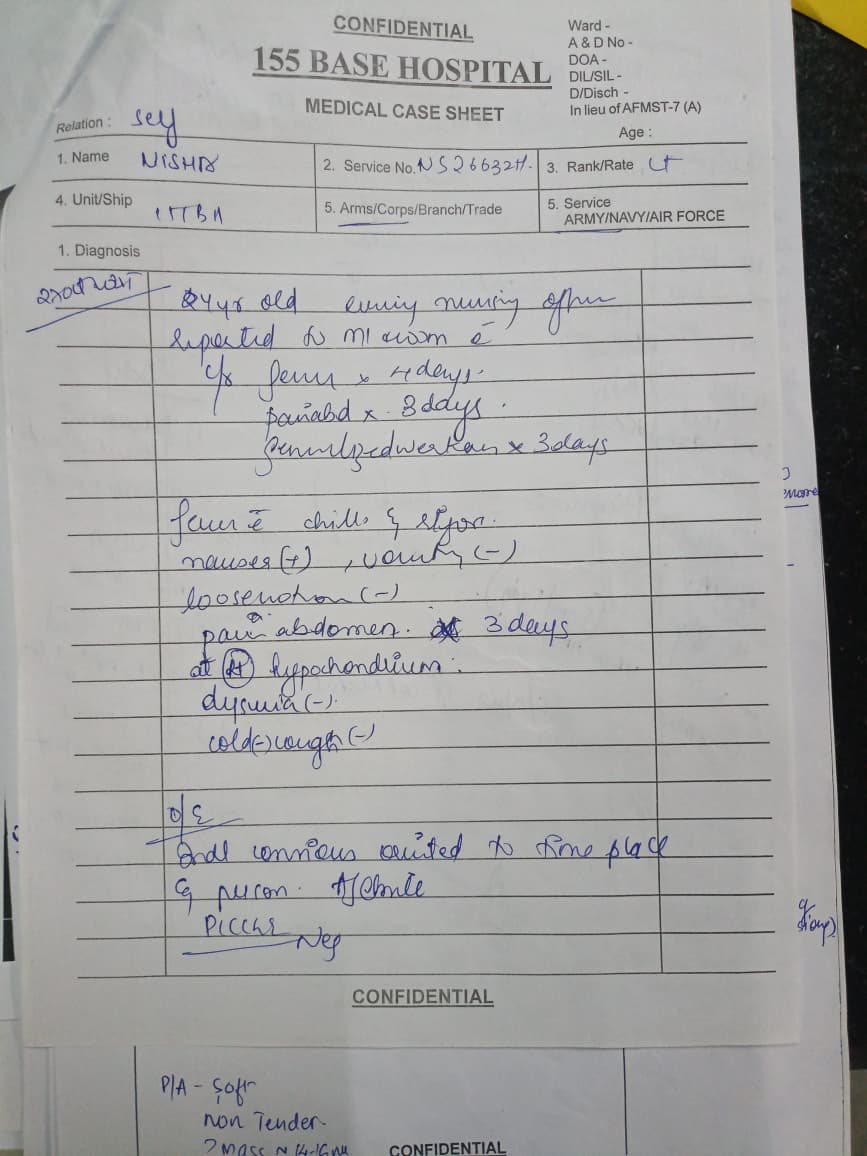 CONFIDENTIAL
155 BASE HOSPITAL
MEDICAL CASE SHEET
Ward -
A & D No -
DOA -
DIL/SIL -
D/Disch -
In lieu of AFMST-7 (A)
Age :
Relation : Self
1. Name NISHA
2. Service No. NS26632H.
3. Rank/Rate Lt
4. Unit/Ship
5. Arms/Corps/Branch/Trade
5. Service
ARMY/NAVY/AIR FORCE
1. Diagnosis
24 yr old nursing officer
reported to MI room c̄
c/o fever x 4 days.
pain abd x 3 days.
generalized weakness x 3 days
fever c̄ chills & rigor.
nausea (+) , vomiting (-)
loose motion (-)
pain abdomen. 3 days
at Rt hypochondrium.
dysuria (-).
cold (-) cough (-)
O/E
conscious oriented to time place
& person. Afebrile
PICCLE
Neg
CONFIDENTIAL
P/A - Soft
non Tender
CONFIDENTIAL